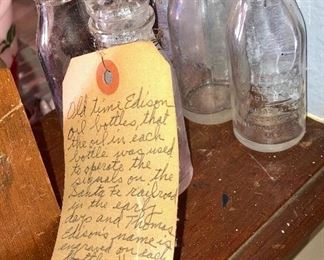 Old time Edison
oil bottles, that
the oil in each
bottle was used
to operate the
signals on the
Santa Fe railroad
in the early
days and Thomas
Edison's name is
engraved on each